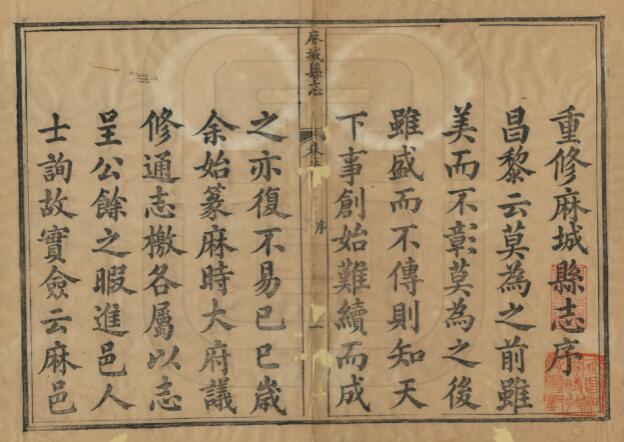 重修麻城縣志序
昌黎云莫為之前雖
美而不彰莫為之後
雖盛而不傳則知天
下事創始難續而成
麻城縣志
序
一
之亦復不易已巳歲
余始篆麻時大府議
修通志檄各屬以志
呈公餘之暇進邑人
士詢故實僉云麻邑